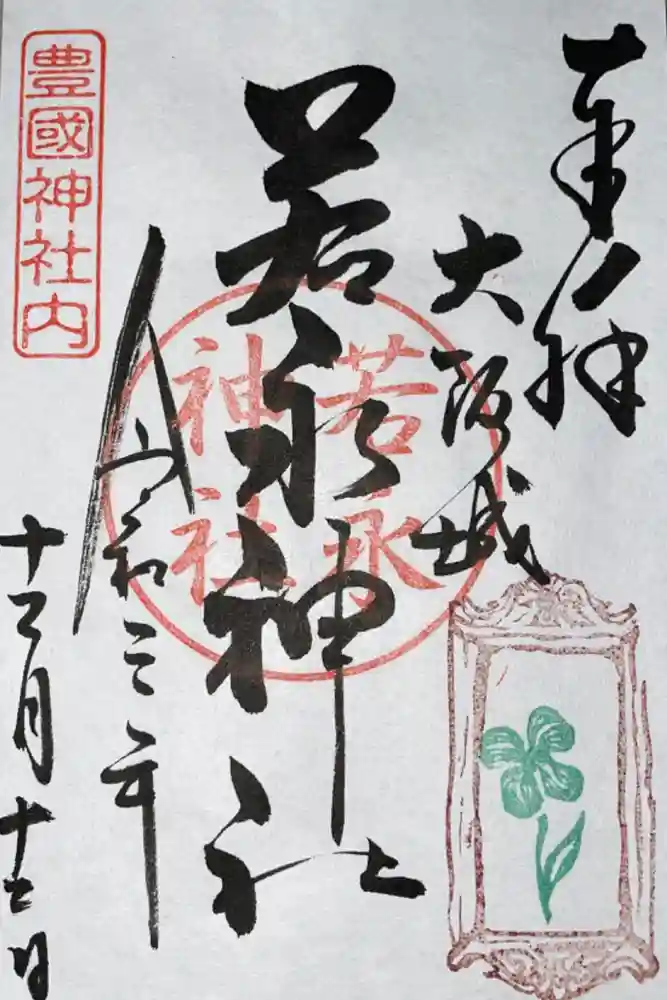 奉拝
大阪城
若永神社
若永
神社
令和三年
十二月十二日
豊國神社内